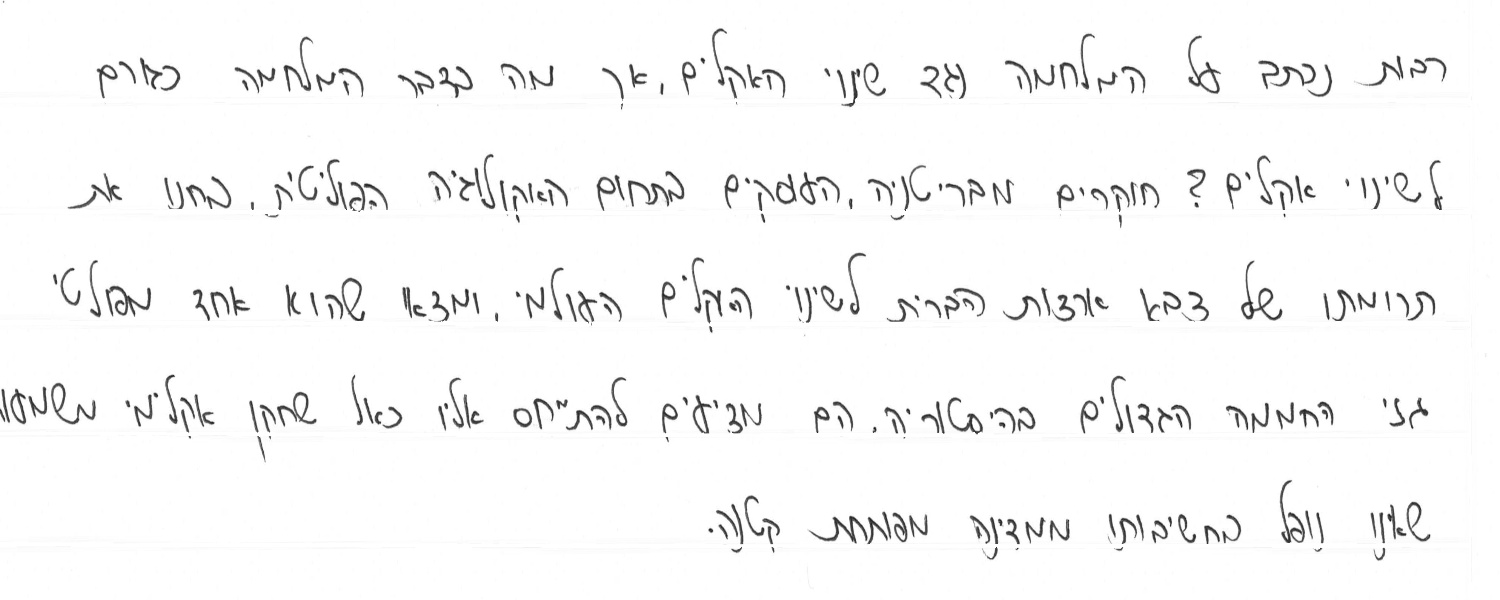 רבות נכתב על המלחמה נגד שינוי האקלים, אך מה בדבר המלחמה כגורם
לשינוי אקלים? חוקרים מבריטניה, העוסקים בתחום האוקולוגיה הפוליטית, בחנו את
תרומתו של צבא ארצות הברית לשינוי האקלים העולמי, ומצאו שהוא אחד מפולטי
גזי החממה הגדולים בהיסטוריה. הם מציעים להתייחס אליו כאל שחקן אקלימי
שאינו נופל בחשיבותו ממדינה מפותחת קטנה.